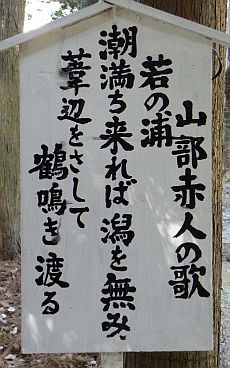 山部赤人の歌
若の浦
潮満ち来れば潟を無み
葦辺をさして
鶴鳴き渡る